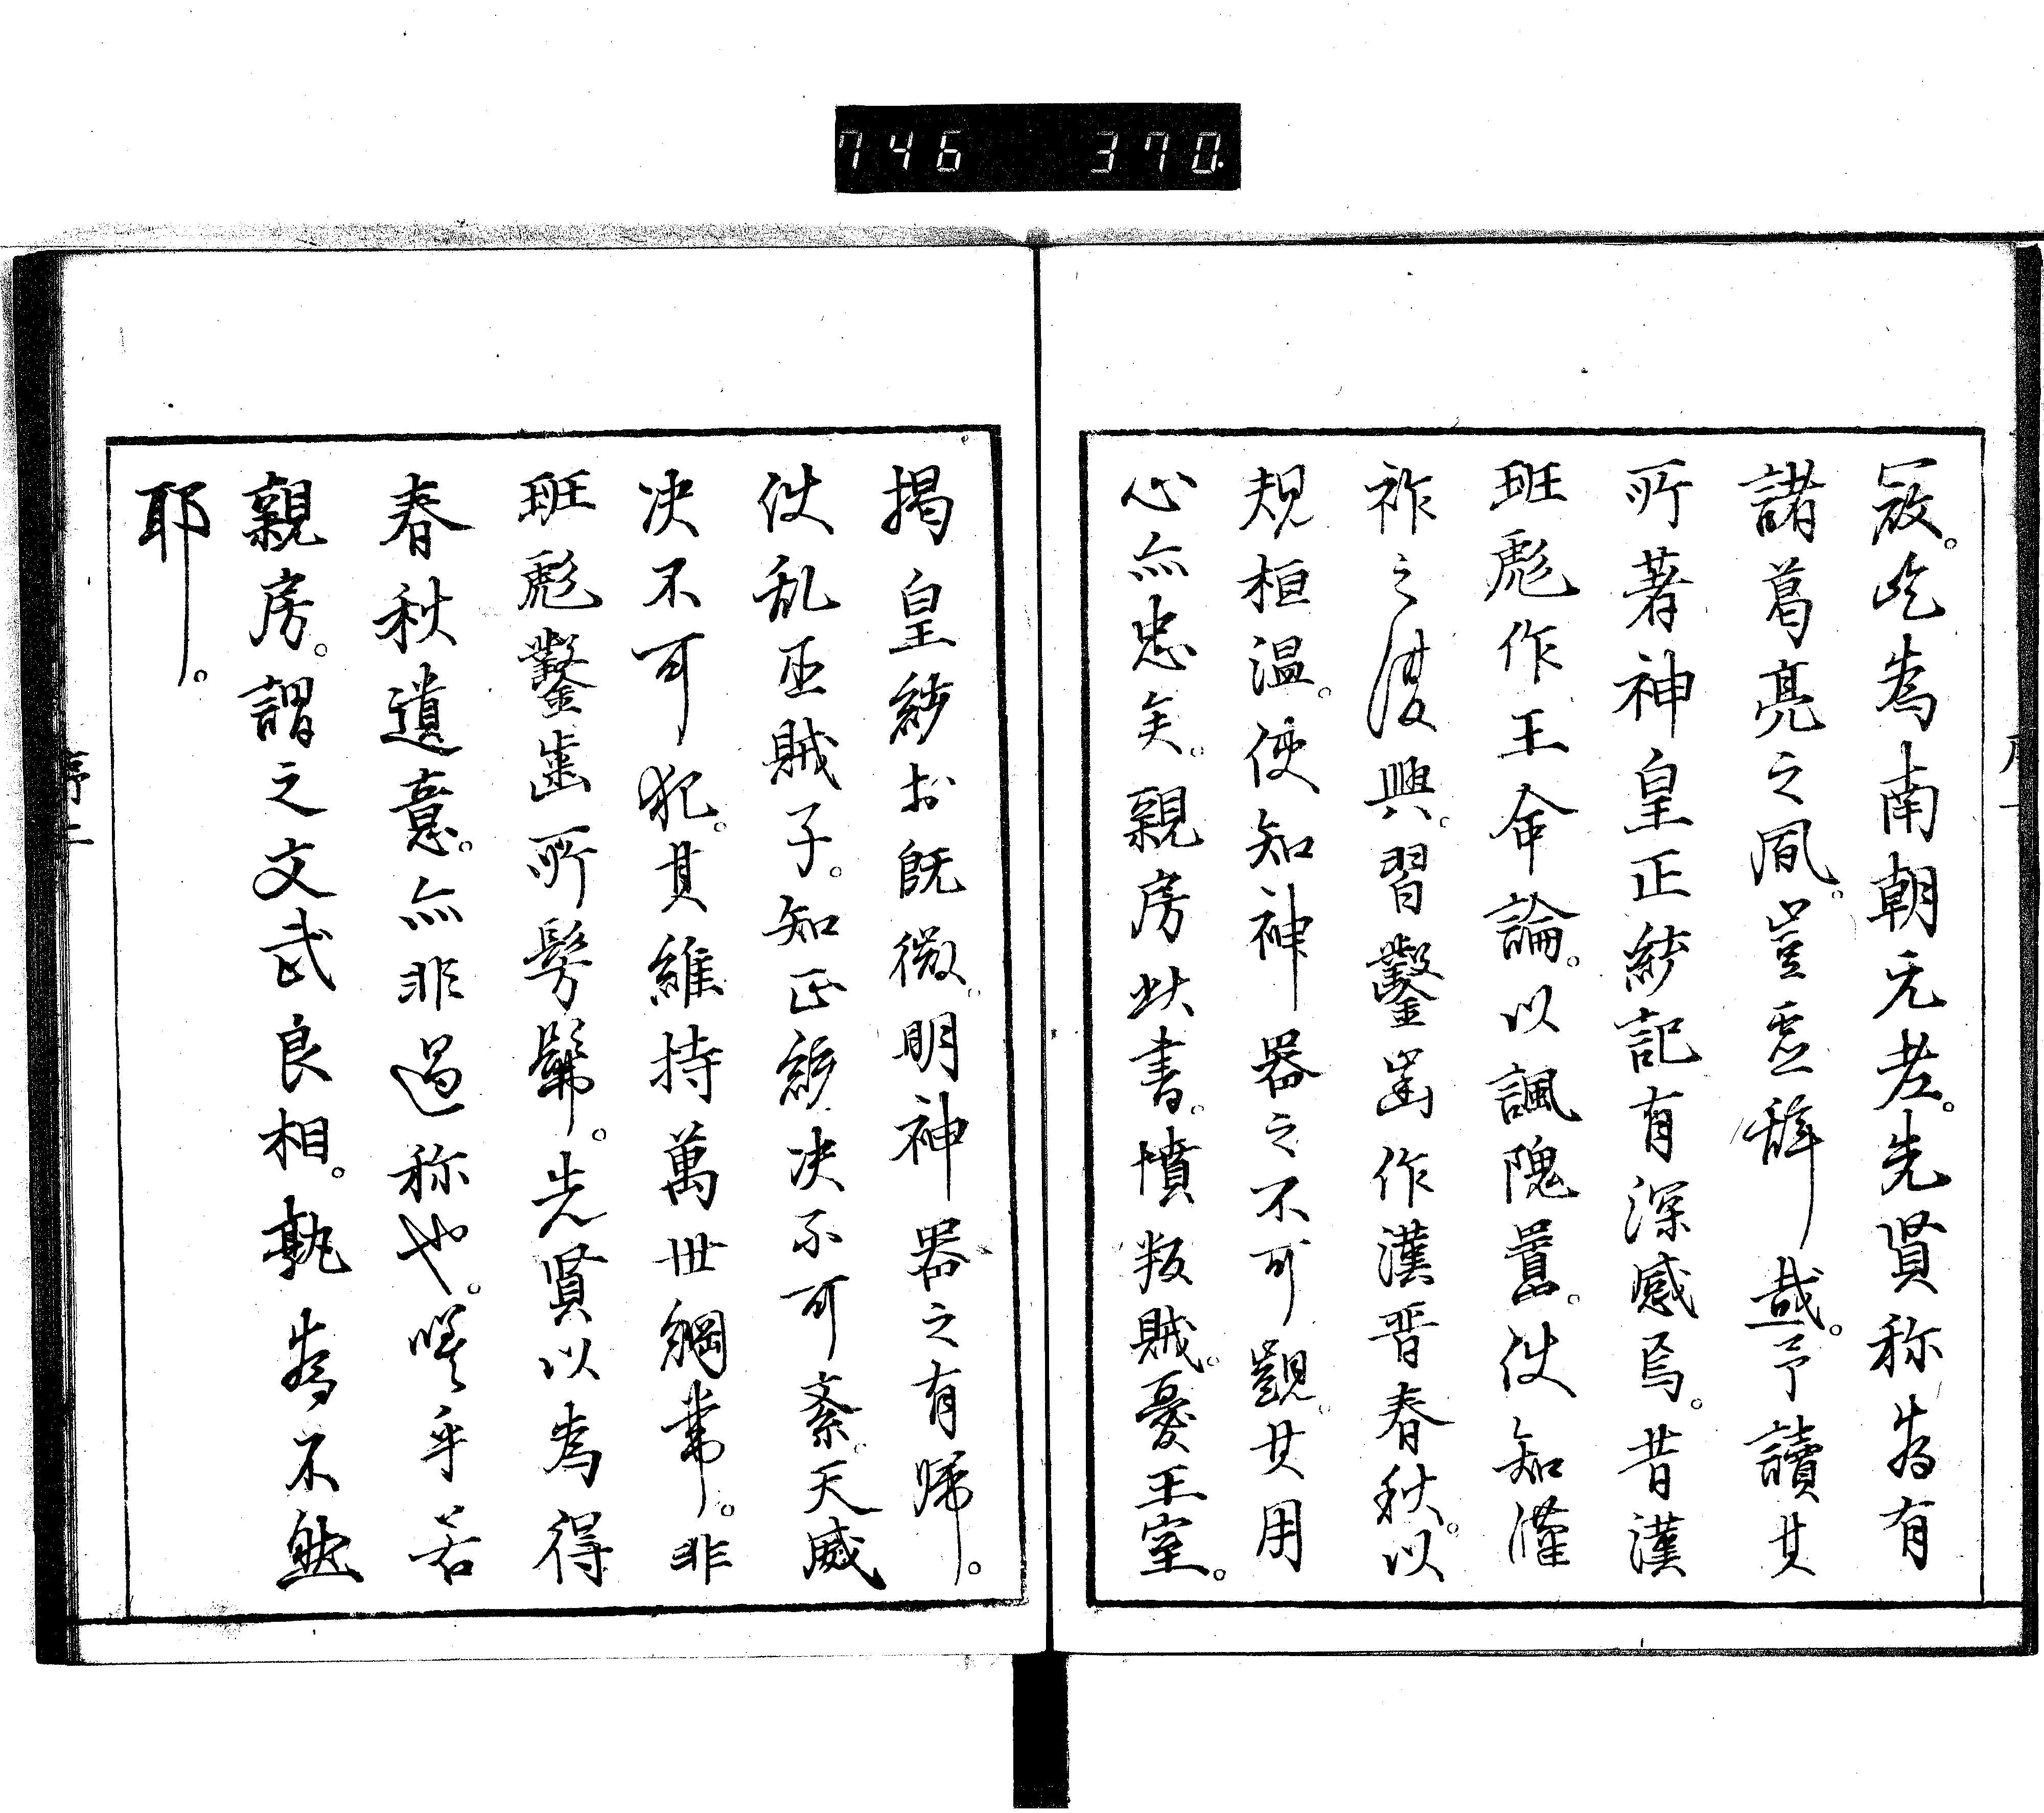 746 370.
寇。屹為南朝元老。先賢称為有
諸葛亮之風。豈虚辞哉。予讀其
所著神皇正統記有深感焉。昔漢
班彪作王命論。以諷隗囂。使知漢
祚之復興。習鑿齒作漢晋春秋。以
規桓温。使知神器之不可覬。其用
心亦忠矣。親房此書。憤叛賊。憂王室。
揭皇統於既微。明神器之有帰。
使乱臣賊子。知正統決不可紊。天威
決不可犯。其維持萬世綱常。非
班彪鑿齒所髣髴。先賢以為得
春秋遺意。亦非過称也。嗟乎若
親房。謂之文武良相。孰為不然
耶。
序二